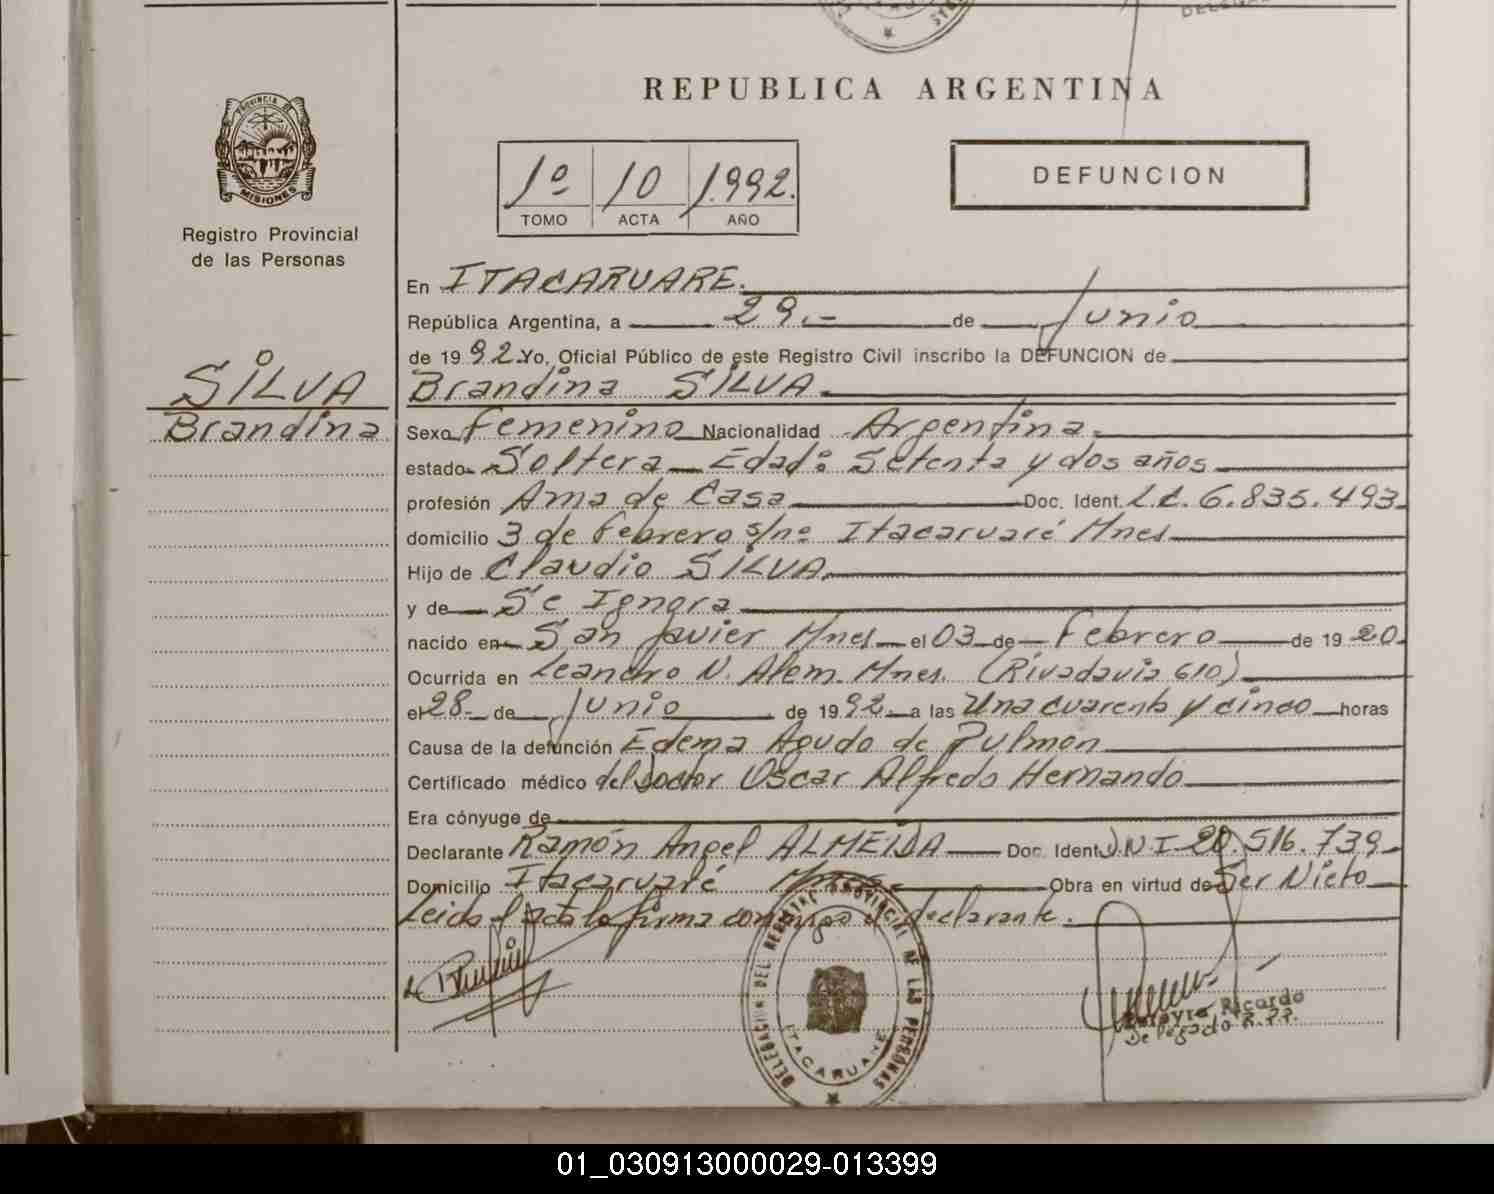 REPUBLICA ARGENTINA
PROVINCIA DE
MISIONES
Registro Provincial
de las Personas
1º 10 1.992.
TOMO ACTA AÑO
DEFUNCION
SILVA
Brandina
En ITACARUARE.
República Argentina, a 29.- de Junio
de 1992. Yo, Oficial Público de este Registro Civil inscribo la DEFUNCION de
Brandina SILVA.
Sexo Femenino Nacionalidad Argentina.
estado Soltera Edad: Setenta y dos años
profesión Ama de Casa Doc. Ident. L.C. 6.835.493
domicilio 3 de Febrero s/nº Itacaruaré Mnes
Hijo de Claudio SILVA.
y de Se Ignora
nacido en San Javier Mnes el 03 de Febrero de 1920.
Ocurrida en Leandro N. Alem Mnes. (Rivadavia 610)
el 28 de Junio de 1992. a las Una cuarenta y cinco horas
Causa de la defunción Edema Agudo de Pulmon
Certificado médico del Doctor Oscar Alfredo Hernando
Era cónyuge de
Declarante Ramón Angel ALMEIDA Doc. Ident. D.N.I. 20.516.739
Domicilio Itacaruaré Mnes. Obra en virtud de Ser Nieto
Leida el acta la firma conmigo el declarante.
DELEGACION DEL REGISTRO PROVINCIAL DE LAS PERSONAS
ITACARUARE
Pereyra Ricardo
Delegado R.P.P.
01_030913000029-013399